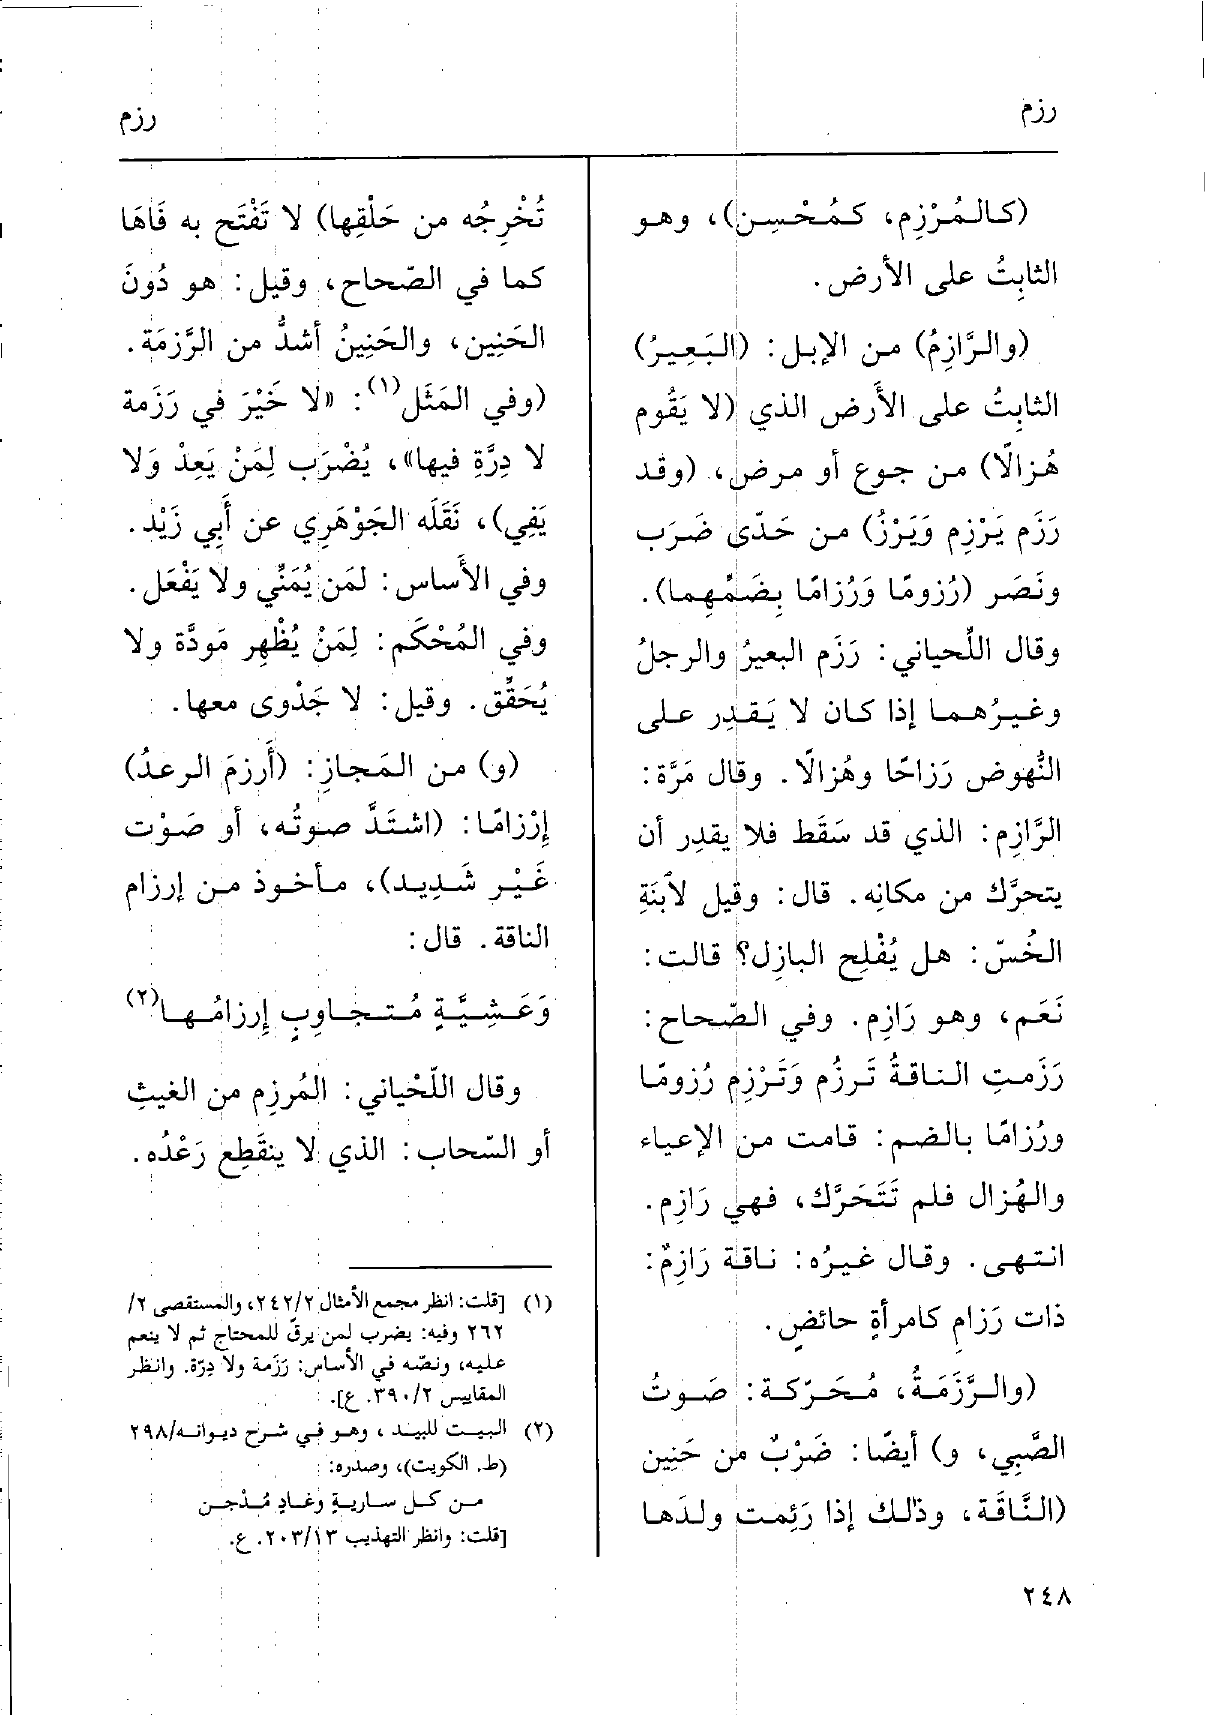 رزم
رزم
(كالـمُرْزِم، كـمُـحْسِـن)، وهـو
الثابِتُ على الأرض.
(والـرَّازِمُ) مـن الإبـل: (البَـعِـيـرُ)
الثابِتُ على الأَرض الذي (لا يَقُوم
هُـزالًا) من جـوع أو مـرض، (وقـد
رَزَم يَـرْزِم وَيَـرْزُ) مـن حَـدّى ضَـرَب
ونَصَـر (رُزومًا وَرُزامًا بِضَـمِّهِـما).
وقال اللّحياني: رَزَم البعيرُ والرجلُ
وغـيـرُهـمـا إذا كـان لا يَـقـدِر عـلـى
النُّهوض رَزاحًا وهُزالًا. وقال مَرَّة:
الرَّازِم: الذي قد سَقَط فلا يقدِر أن
يتحرَّك من مكانِه. قال: وقيل لاُبنَةِ
الخُسّ: هـل يُفْلِح البازِل؟ قالت:
نَعَم، وهو رَازِم. وفي الصّحاح:
رَزَمـتِ الـناقـةُ تَـرزُم وَتَـرْزِم رُزومًـا
ورُزامًـا بالـضـم: قـامـت مـن الإعيـاء
والهُزال فلم تَتَحَرَّك، فهي رَازِم.
انـتـهـى. وقـال غـيـرُه: نـاقـة رَازِمٌ:
ذات رَزام كامرأةٍ حائضٍ.
(والـرَّزَمَـةُ، مُـحَـرّكـة: صَـوتُ
الصَّبِي، و) أيضًا: ضَرْبٌ من حَنِين
(النَّاقَة، وذلك إذا رَئِمت ولدَها
تُخْرِجُه من حَلْقِها) لا تَفْتَح به فَاهَا
كما في الصّحاح، وقيل: هو دُونَ
الحَنِين، والحَنِينُ أشدُّ من الرَّزمَة.
(وفي المَثَل(١): «لا خَيْرَ في رَزَمة
لا دِرَّةِ فيها»، يُضْرَب لِمَنْ يَعِدْ وَلا
يَفِي)، نَقَلَه الجَوْهَرِي عن أَبِي زَيْد.
وفي الأَساس: لمَن يُمَنِّي ولا يَفْعَل.
وفي المُحْكَم: لِمَنْ يُظْهِر مَودَّة ولا
يُحَقِّق. وقيل: لا جَدْوى معها.
(و) مـن الـمَجـاز: (أَرزمَ الـرعـدُ)
إِرْزامًا: (اشـتَدَّ صـوتُـه، أو صَـوْت
غَـيْـر شَـدِيـد)، مـأخـوذ مـن إرزام
الناقة. قال:
وَعَـشِـيَّـةٍ مُـتـجـاوِبٍ إِرزامُـهـا(٢)
وقال اللّحْياني: المُرزِم من الغيثِ
أو السّحاب: الذي لا ينقَطِع رَعْدُه.
(١) [قلت: انظر مجمع الأمثال ٢٤٢/٢، والمستقصى ٢/
٢٦٢ وفيه: يضرب لمن يرقّ للمحتاج ثم لا ينعم
عليه، ونصّه في الأساس: رَزَمة ولا دِرّة. وانظر
المقاييس ٣٩٠/٢. ع].
(٢) البيـت للبيـد، وهـو فـي شـرح ديـوانـه/٢٩٨
(ط. الكويت)، وصدره:
مـن كـل ساريـةٍ وغـادٍ مُـدْجـن
[قلت: وانظر التهذيب ٢٠٣/١٣. ع.
٢٤٨